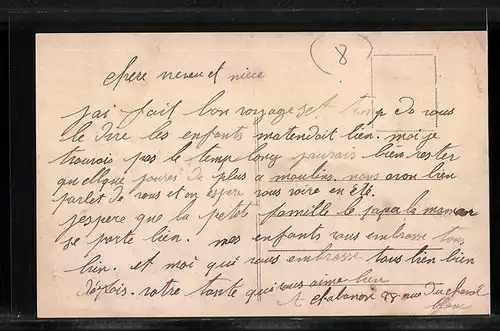 (8)
chere neveu et niece
jai fait bon voyage set temp do vous
le dire les enfants matendait bien. moi je
trouvois pas le temp long jaurais bien rester
quellque joures de plus a moulins. nous avon bien
parlet de vous et on espere vous voire en Eté.
jespere que la petite famille le papa la maman
se porte bien. mes enfants vous embrasse tous
bien. et moi qui vous embrasse tous bien bien
votre tante qui vous aime bien
A chabanon 88 rue du cheval
blanc